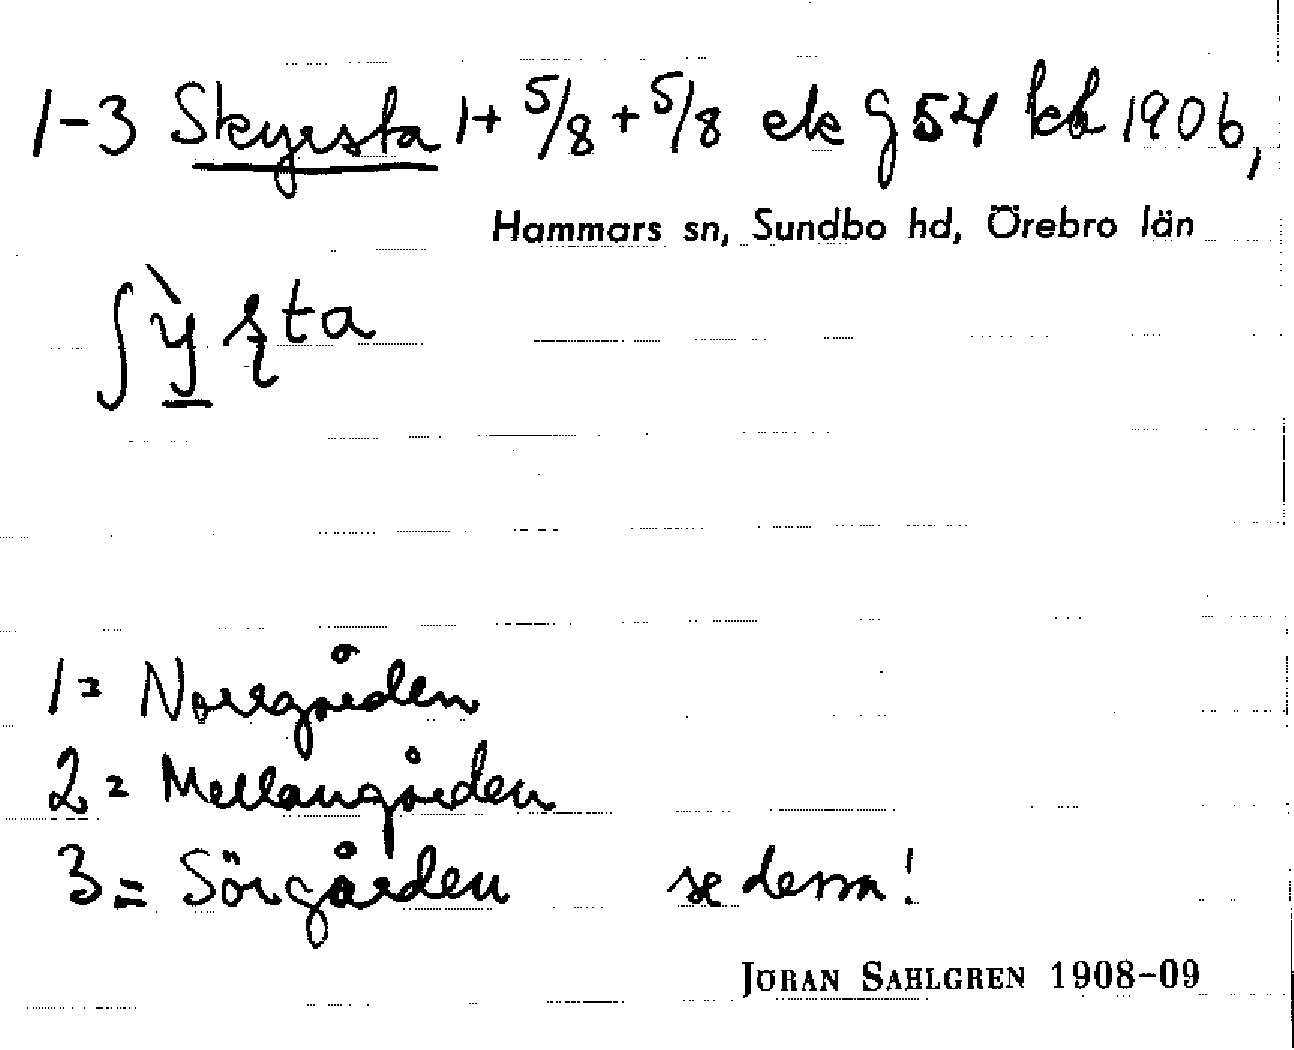 1-3 Skyrsta 1+ 5/8 + 5/8 ek g 54 kb 1906,
Hammars sn, Sundbo hd, Örebro län
1= Norrgården
2= Mellangården
3= Sörgården se dessa!
JÖRAN SAHLGREN 1908-09